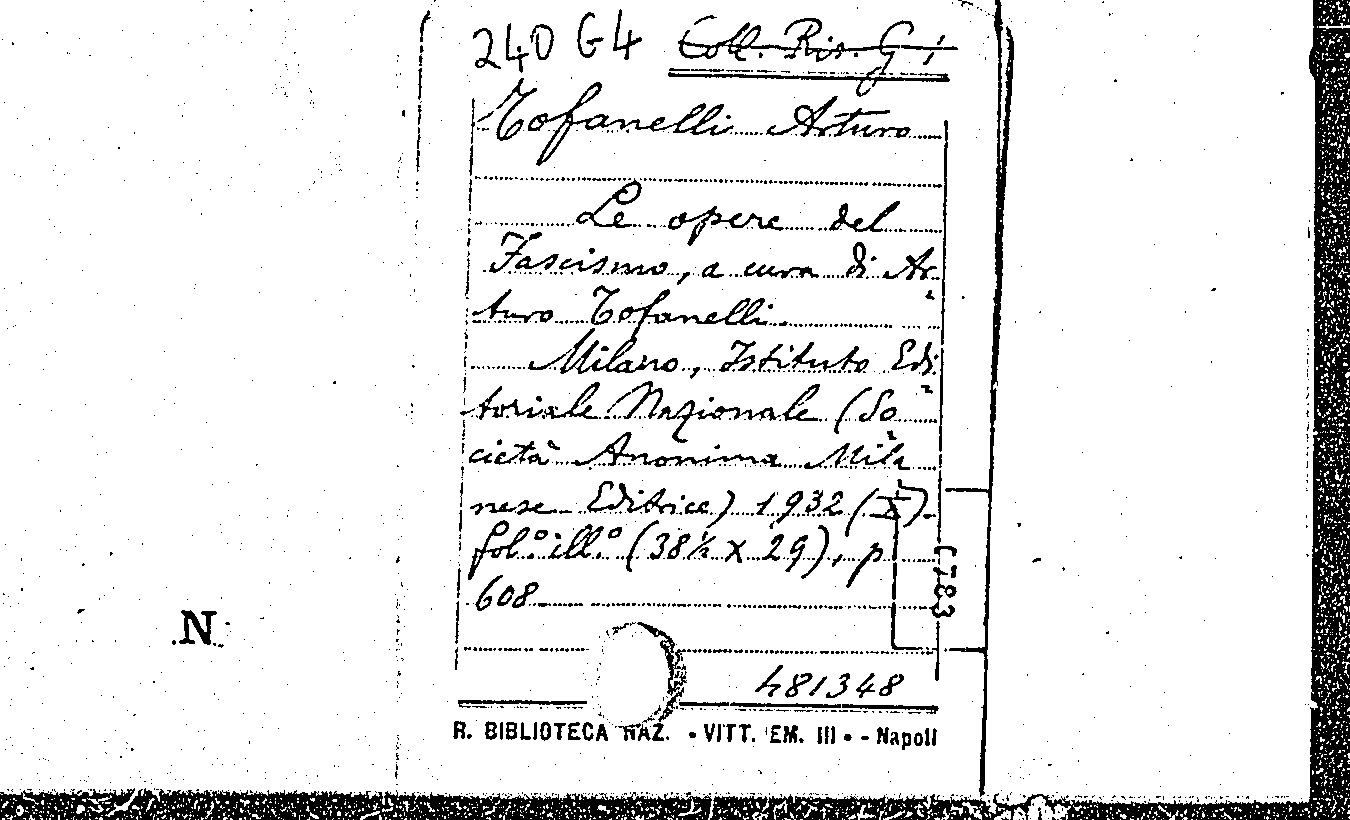 240 G4 Coll. Ris. G i
Tofanelli Arturo
Le opere del
Fascismo, a cura di Ar=
turo Tofanelli.
Milano, Istituto Edi=
toriale Nazionale (So
cietà Anonima Mila
nese Editrice) 1932 (X).
fol.° ill.° (38½ x 29), p
608
C783
N
481348
R. BIBLIOTECA NAZ. • VITT. EM. III • - Napoli